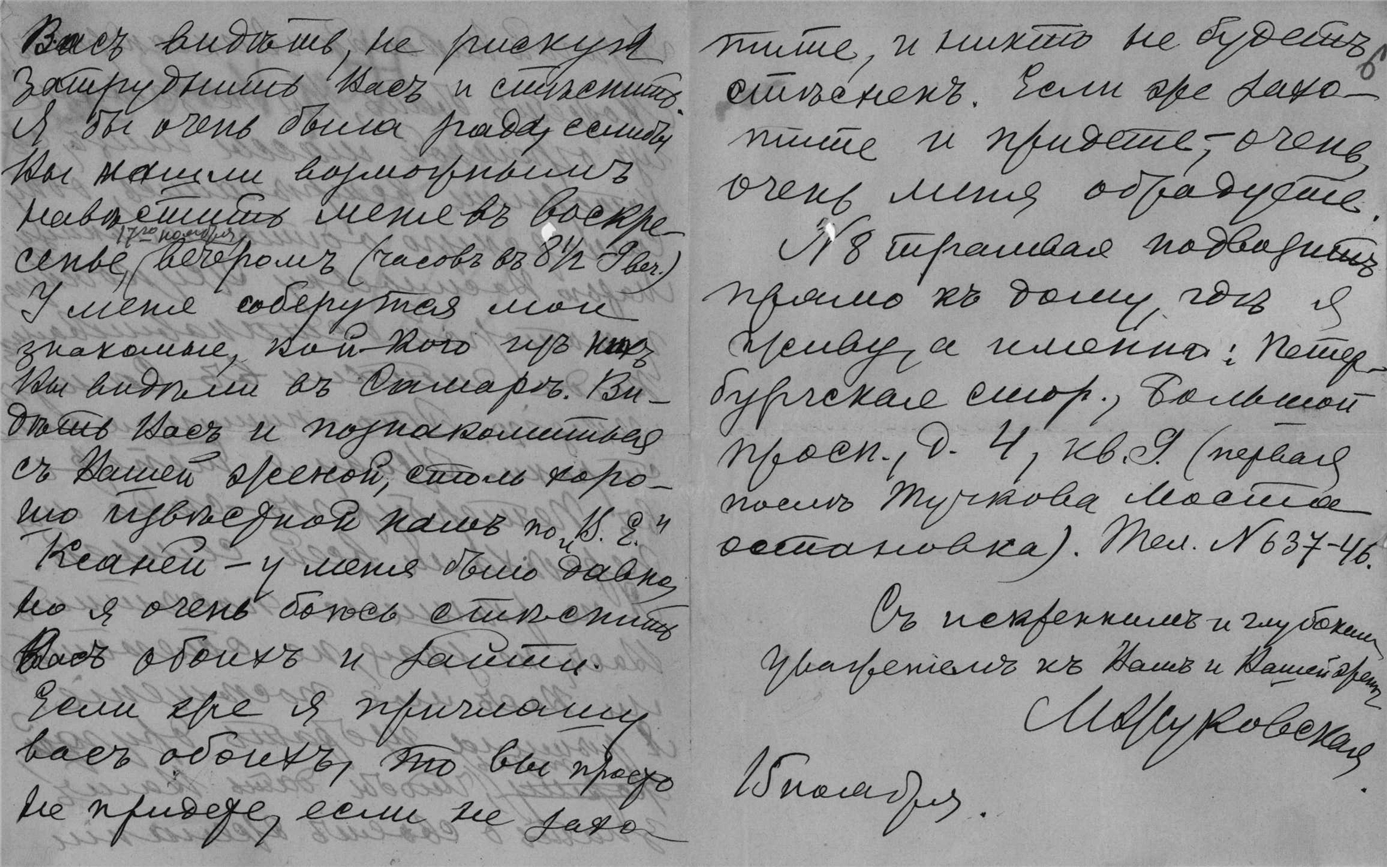 Васъ видѣть, не рискуя
затруднить Васъ и стѣснить.
Я бы очень была рада, еслибы
Вы нашли возможнымъ
навѣстить меня въ воскре-
17го ноября
сенье, вечеромъ (часовъ въ 8½ 9 веч.)
У меня соберутся мои
знакомые, кой-кого изъ нихъ
Вы видѣли въ Самарѣ. Ви-
дѣть Васъ и познакомиться
съ Вашей женой, столь хоро-
шо извѣстной намъ по „В. Е.“
Ксаней – у меня было давно,
но я очень боюсь стѣснить
Васъ обоихъ и зайти.
Если же я приглашу
васъ обоихъ, то вы просто
не придете, если не захо-
тите, и никто не будетъ
6
стѣсненъ. Если же захо-
тите и придете, – очень,
очень меня обрадуете.
N 8 трамвая подвозитъ
прямо къ дому, гдѣ я
живу, а именно: Петер-
бургская стор., Большой
просп., д. 4, кв. 9. (первая
послѣ Тучкова Моста
остановка). Тел. N 637-46.
Съ искреннимъ и глубокимъ
уваженіемъ къ Вамъ и Вашей женѣ
М Жуковская.
15 ноября.